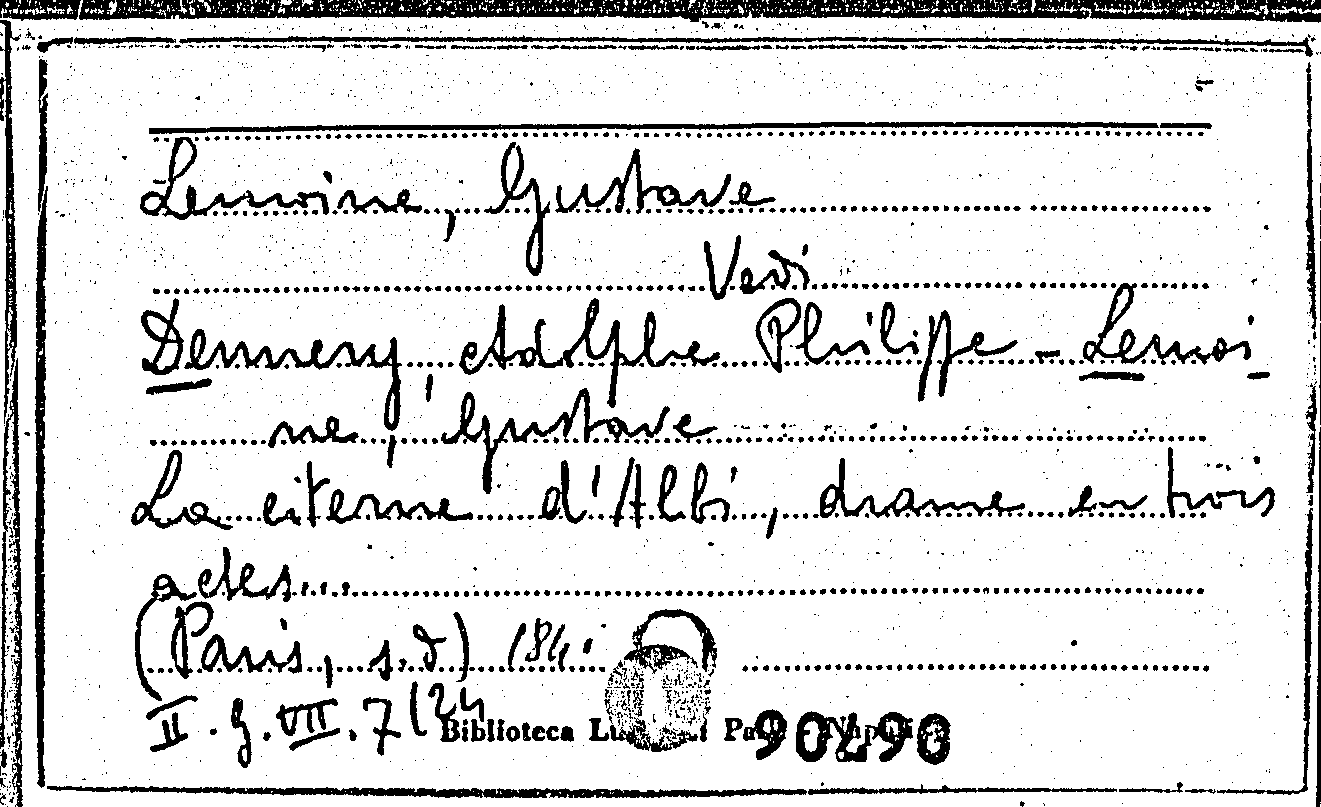 Lemoine, Gustave
Vedi
Dennery, Adolphe Philippe - Lemoi-
ne, Gustave
La citerne d'Albi, drame en trois
actes...
(Paris, s.d) 184.
II. g. VII. 7(24
Biblioteca